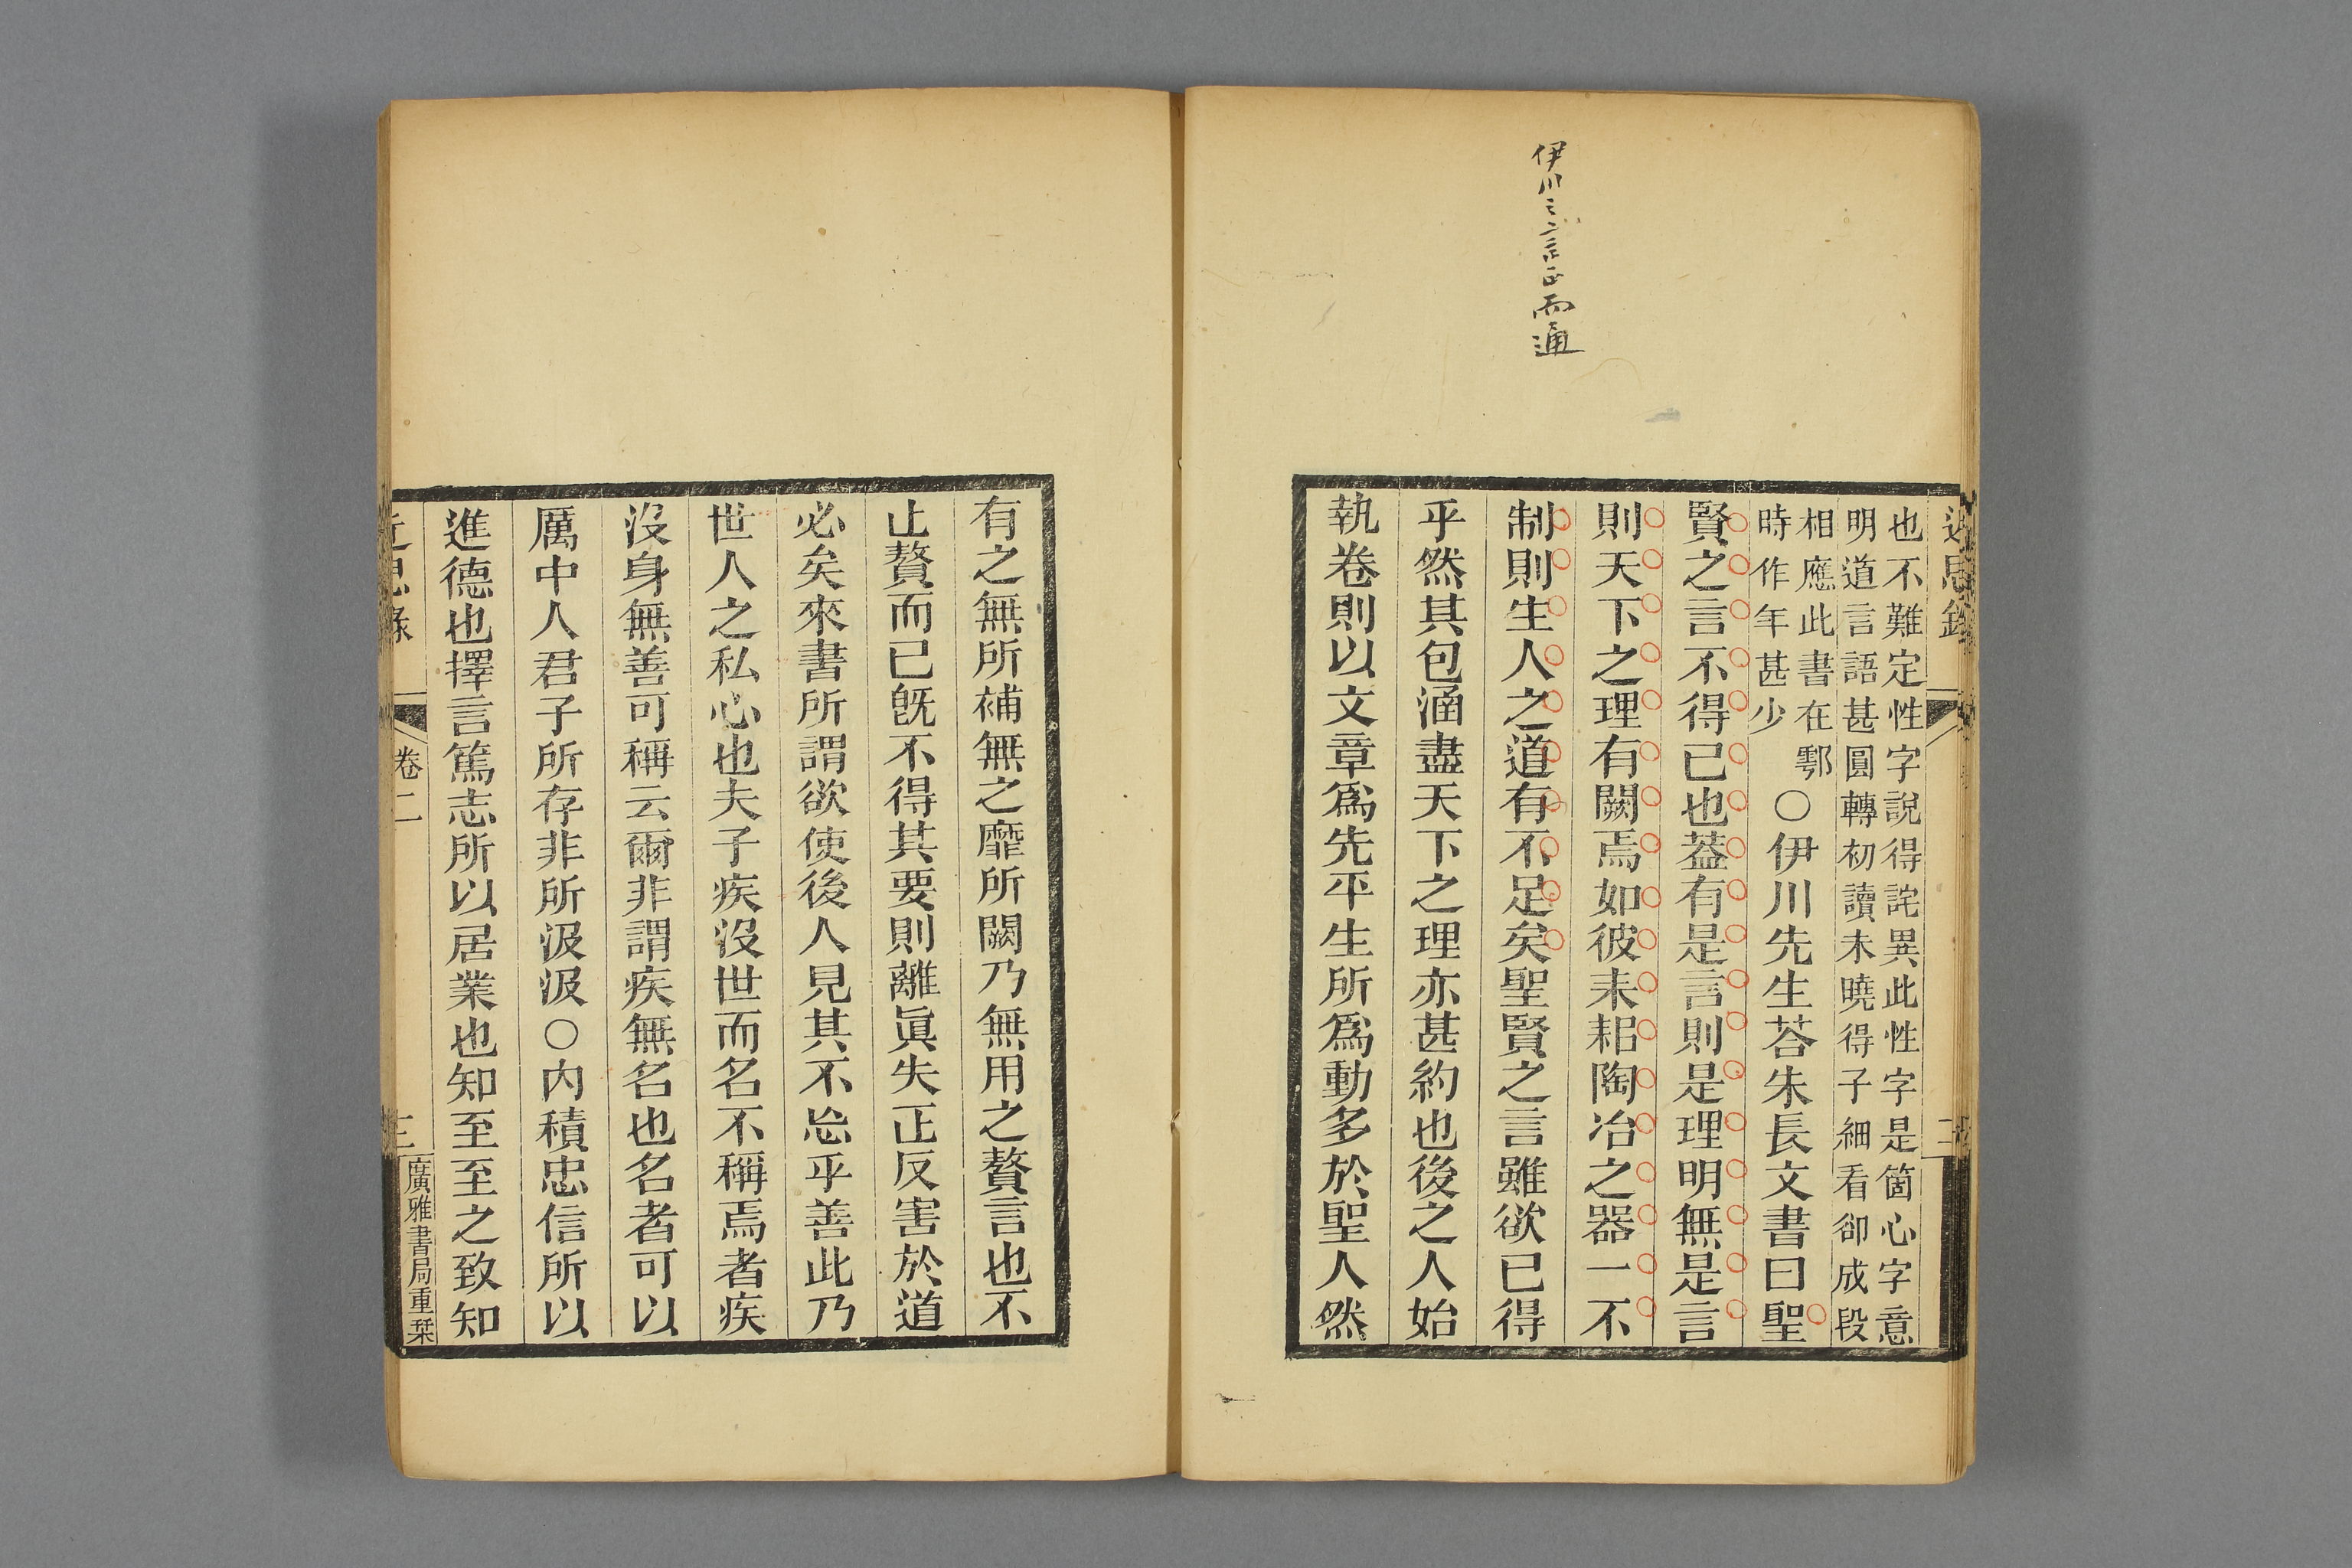 伊川之言正而通
近思錄
二
也不難定性字說得詫異此性字是箇心字意
明道言語甚圓轉初讀未曉得子細看卻成段
相應此書在鄠
時作年甚少
○伊川先生荅朱長文書曰聖
賢之言不得已也葢有是言則是理明無是言
則天下之理有闕焉如彼耒耜陶冶之器一不
制則生人之道有不足矣聖賢之言雖欲已得
乎然其包涵盡天下之理亦甚約也後之人始
執卷則以文章爲先平生所爲動多於聖人然
有之無所補無之靡所闕乃無用之贅言也不
止贅而已旣不得其要則離眞失正反害於道
必矣來書所謂欲使後人見其不忘乎善此乃
世人之私心也夫子疾沒世而名不稱焉者疾
沒身無善可稱云爾非謂疾無名也名者可以
厲中人君子所存非所汲汲○內積忠信所以
進德也擇言篤志所以居業也知至至之致知
近思錄
卷二
三
廣雅書局重栞